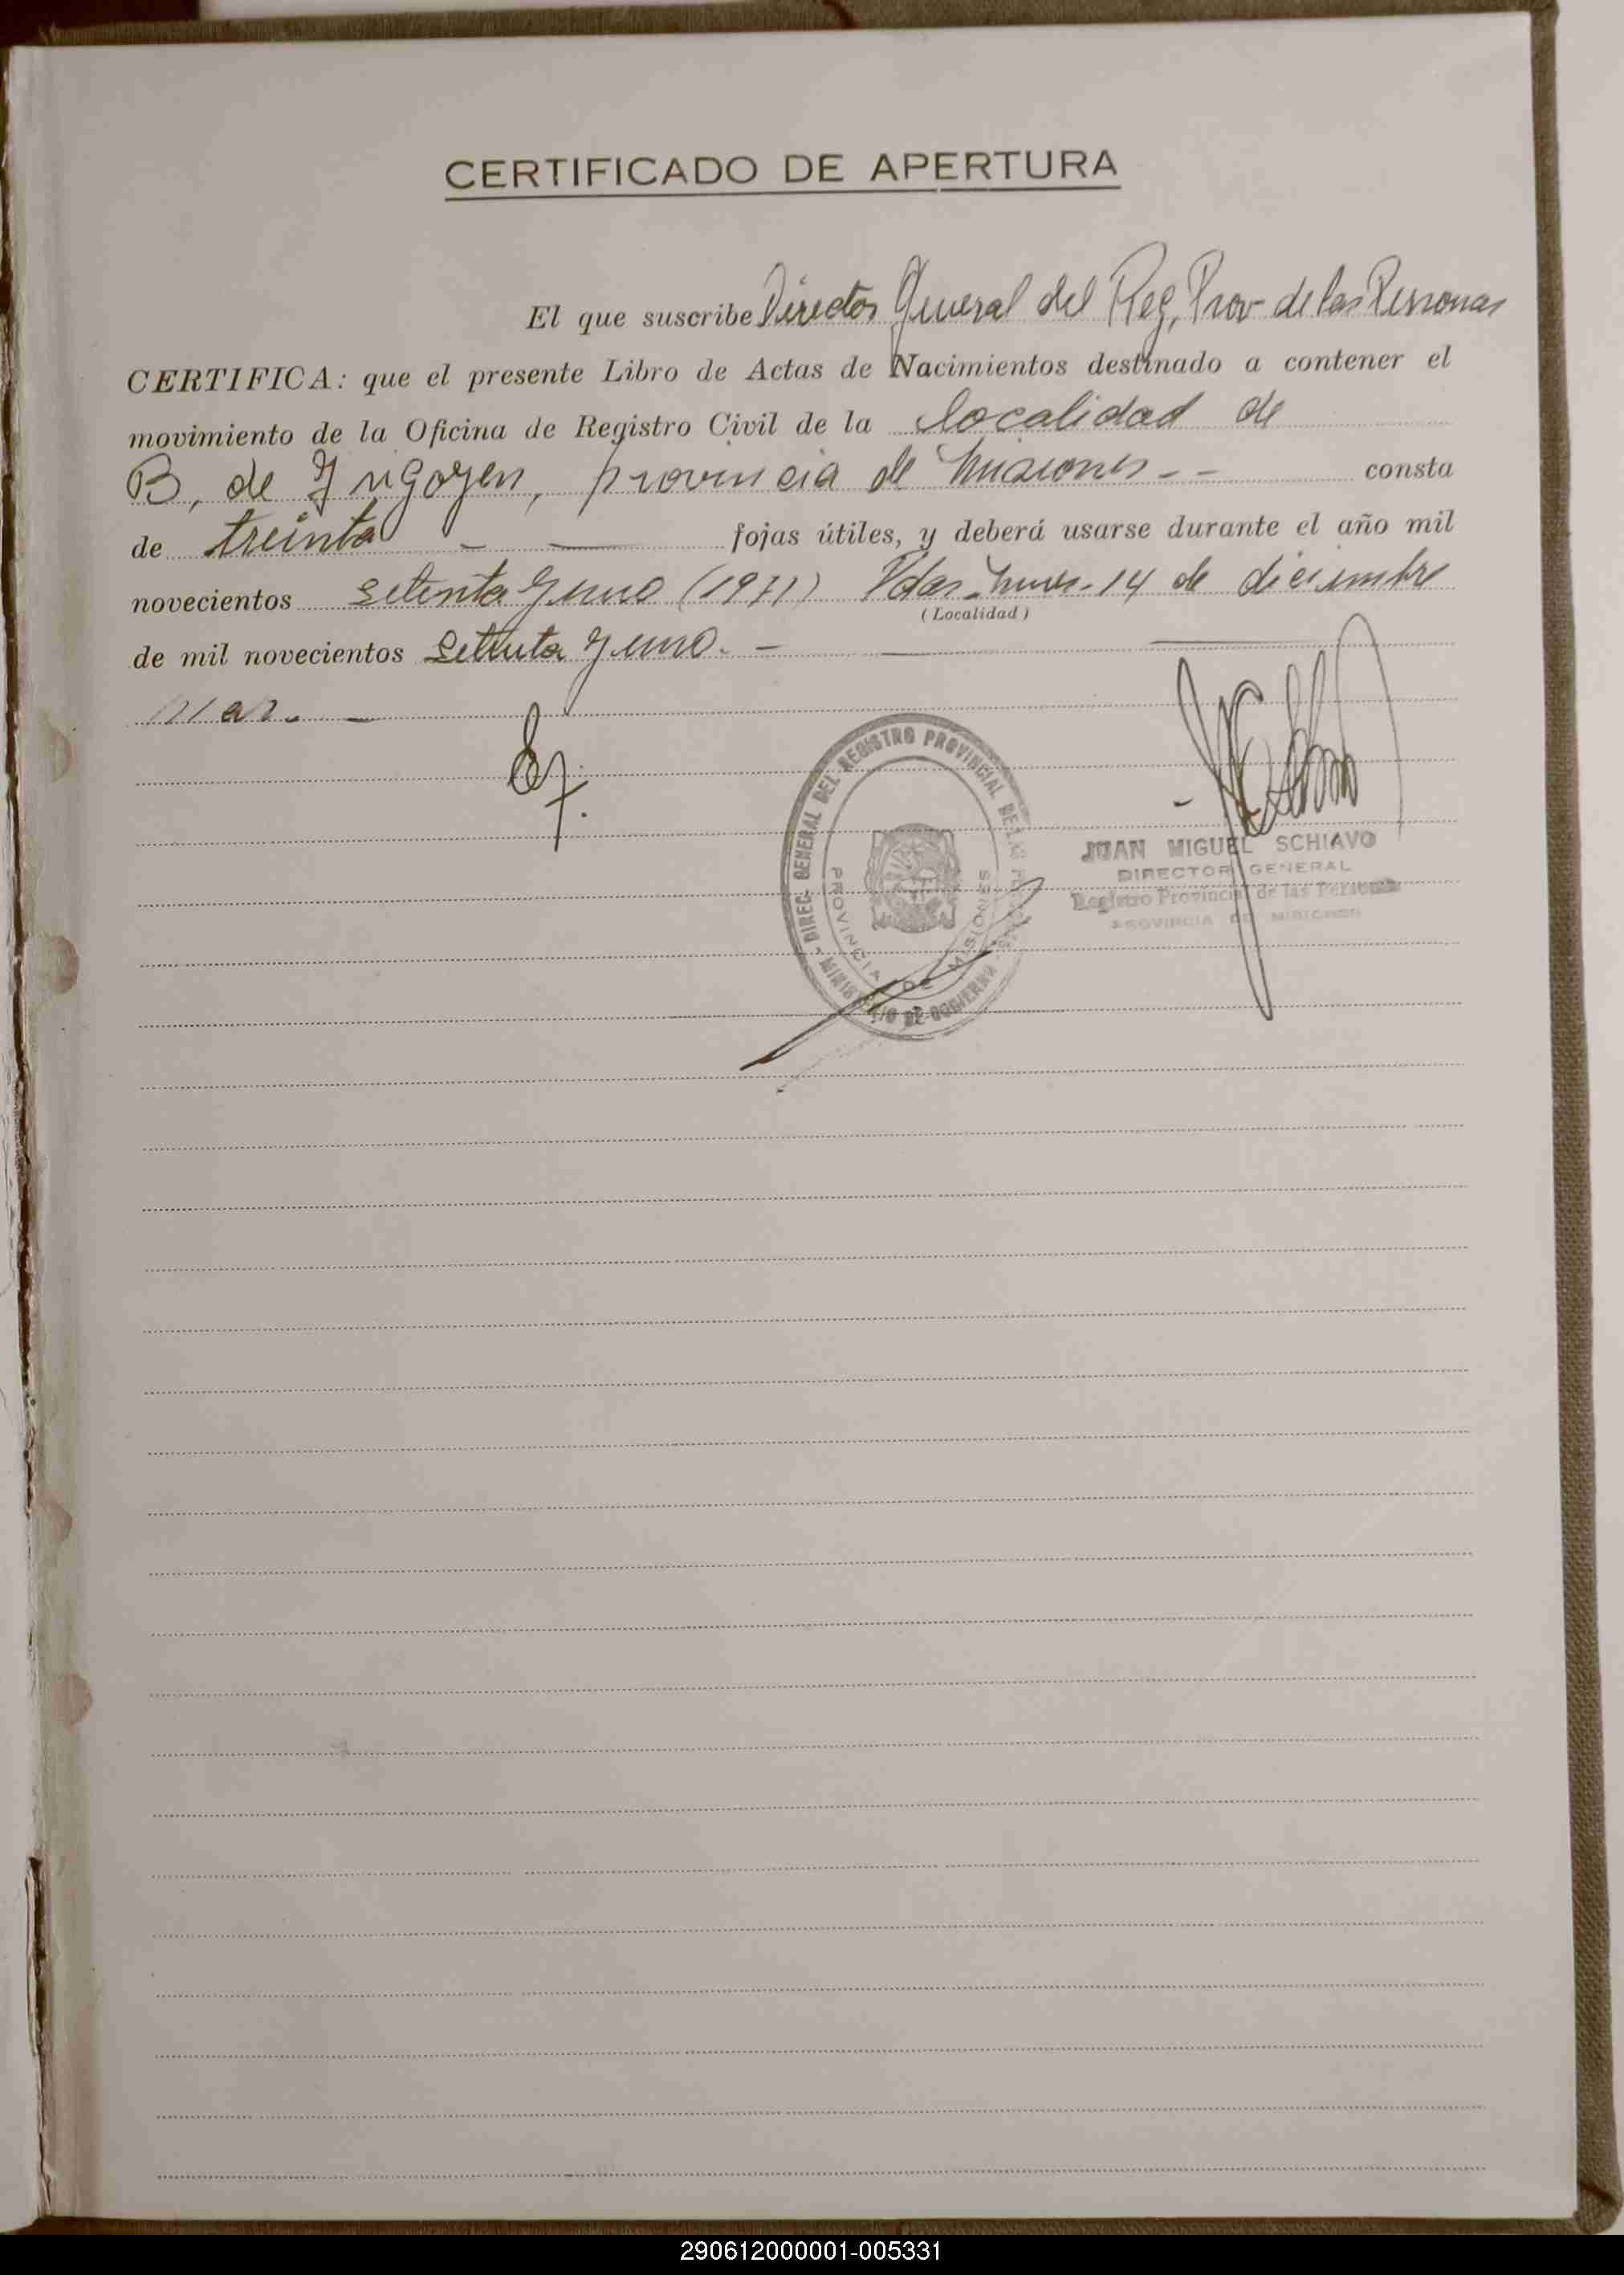 CERTIFICADO DE APERTURA
El que suscribe Director General del Reg. Prov de las Personas
CERTIFICA: que el presente Libro de Actas de Nacimientos destinado a contener el
movimiento de la Oficina de Registro Civil de la localidad de
B. de Irigoyen, provincia de Misiones - - consta
de treinta - — fojas útiles, y deberá usarse durante el año mil
novecientos setenta y uno (1971) Pdas. Mnes - 14 de diciembre
(Localidad)
de mil novecientos setenta y uno. -
DIREC. GENERAL DEL REGISTRO PROVINCIAL DE LAS
PROVINCIA DE MISIONES
MINISTERIO DE GOBIERNO
JUAN MIGUEL SCHIAVO
DIRECTOR GENERAL
Registro Provincial de las Personas
PROVINCIA DE MISIONES
290612000001-005331